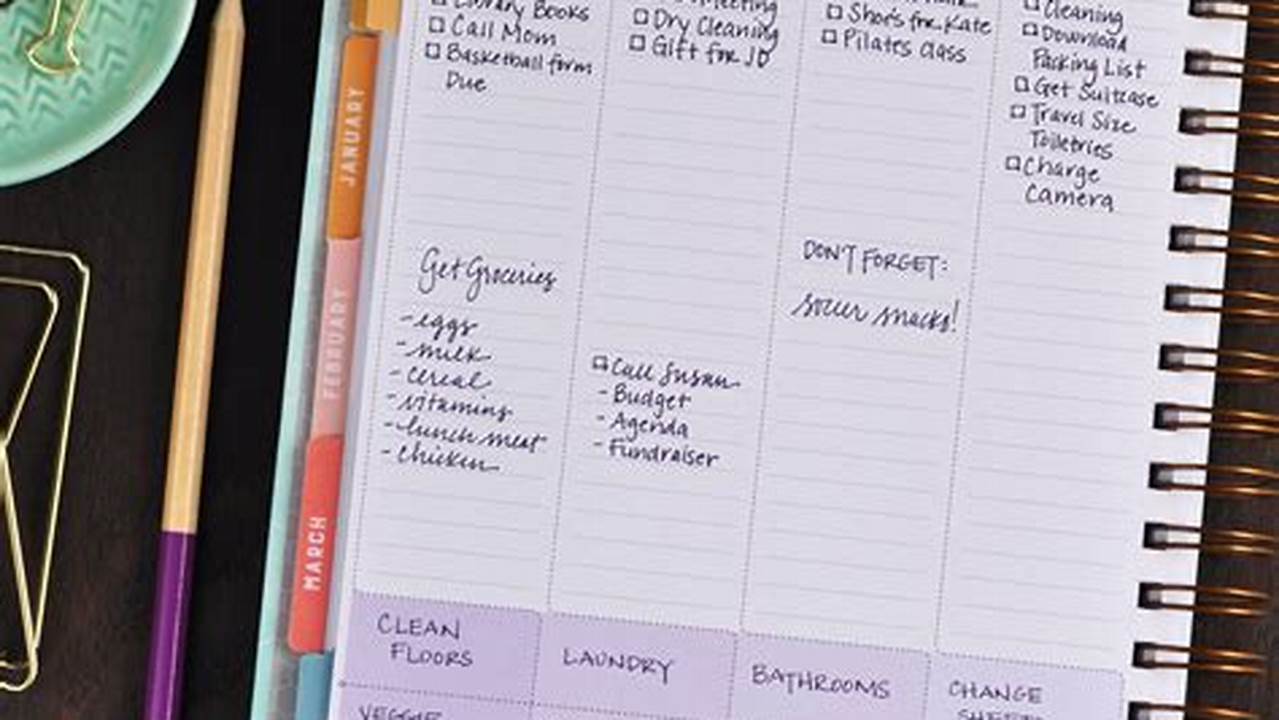 Library Books
Call Mom
Basketball form
Due
Meeting
Dry Cleaning
Gift for JD
Shorts for Kate
Pilates Class
Cleaning
Download
Packing List
Get Suitcase
Travel Size
Toiletries
Charge
Camera
JANUARY
FEBRUARY
MARCH
Get Groceries
- eggs
- milk
- cereal
- vitamins
- lunch meat
- chicken
Call Susan
- Budget
- Agenda
- Fundraiser
DON'T FORGET:
soccer snacks!
CLEAN
FLOORS
LAUNDRY
BATHROOMS
CHANGE
SHEETS
VEGGIE